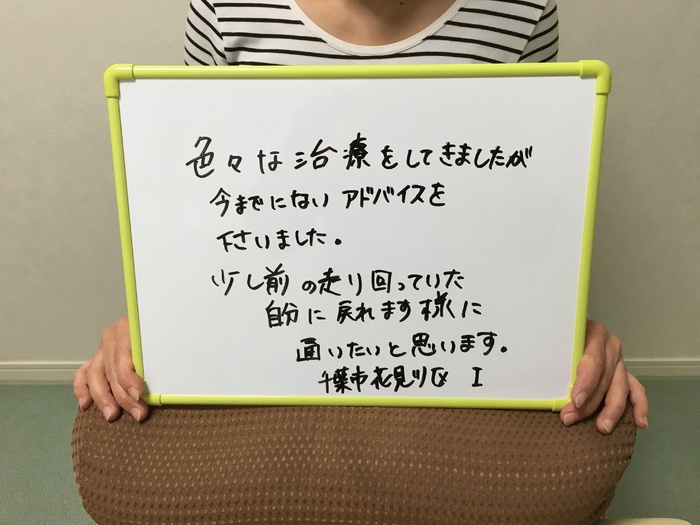 色々な治療をしてきましたが
今までにない アドバイスを
下さいました。
少し前の走り回っていた
自分に戻れます様に
通いたいと思います。
千葉市花見川区 I